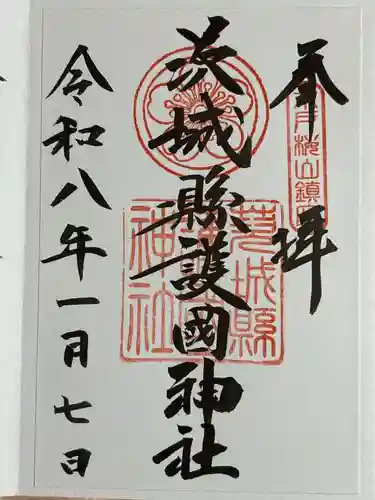 奉拝
茨城縣護國神社
令和八年一月七日
茨城縣
護國
神社